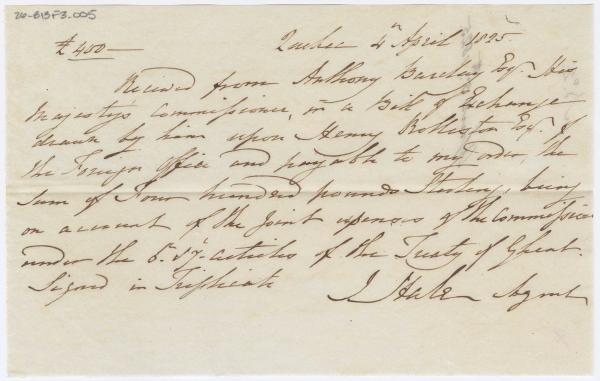 26-B13F3.005
£ 400 — Quebec 4th April 1825
Received from Anthony Barclay Esqr. His
Majestys Commissioner, in a Bill of Exchange
drawn by him upon Henry Rolleston Esqr. of
the Foreign Office and payable to my order, the
sum of Four hundred pounds Sterling, being
on account of the Joint expenses of the Commission
under the 6. & 7th articles of the Treaty of Ghent.
Signed in Triplicate
J Hale Agent